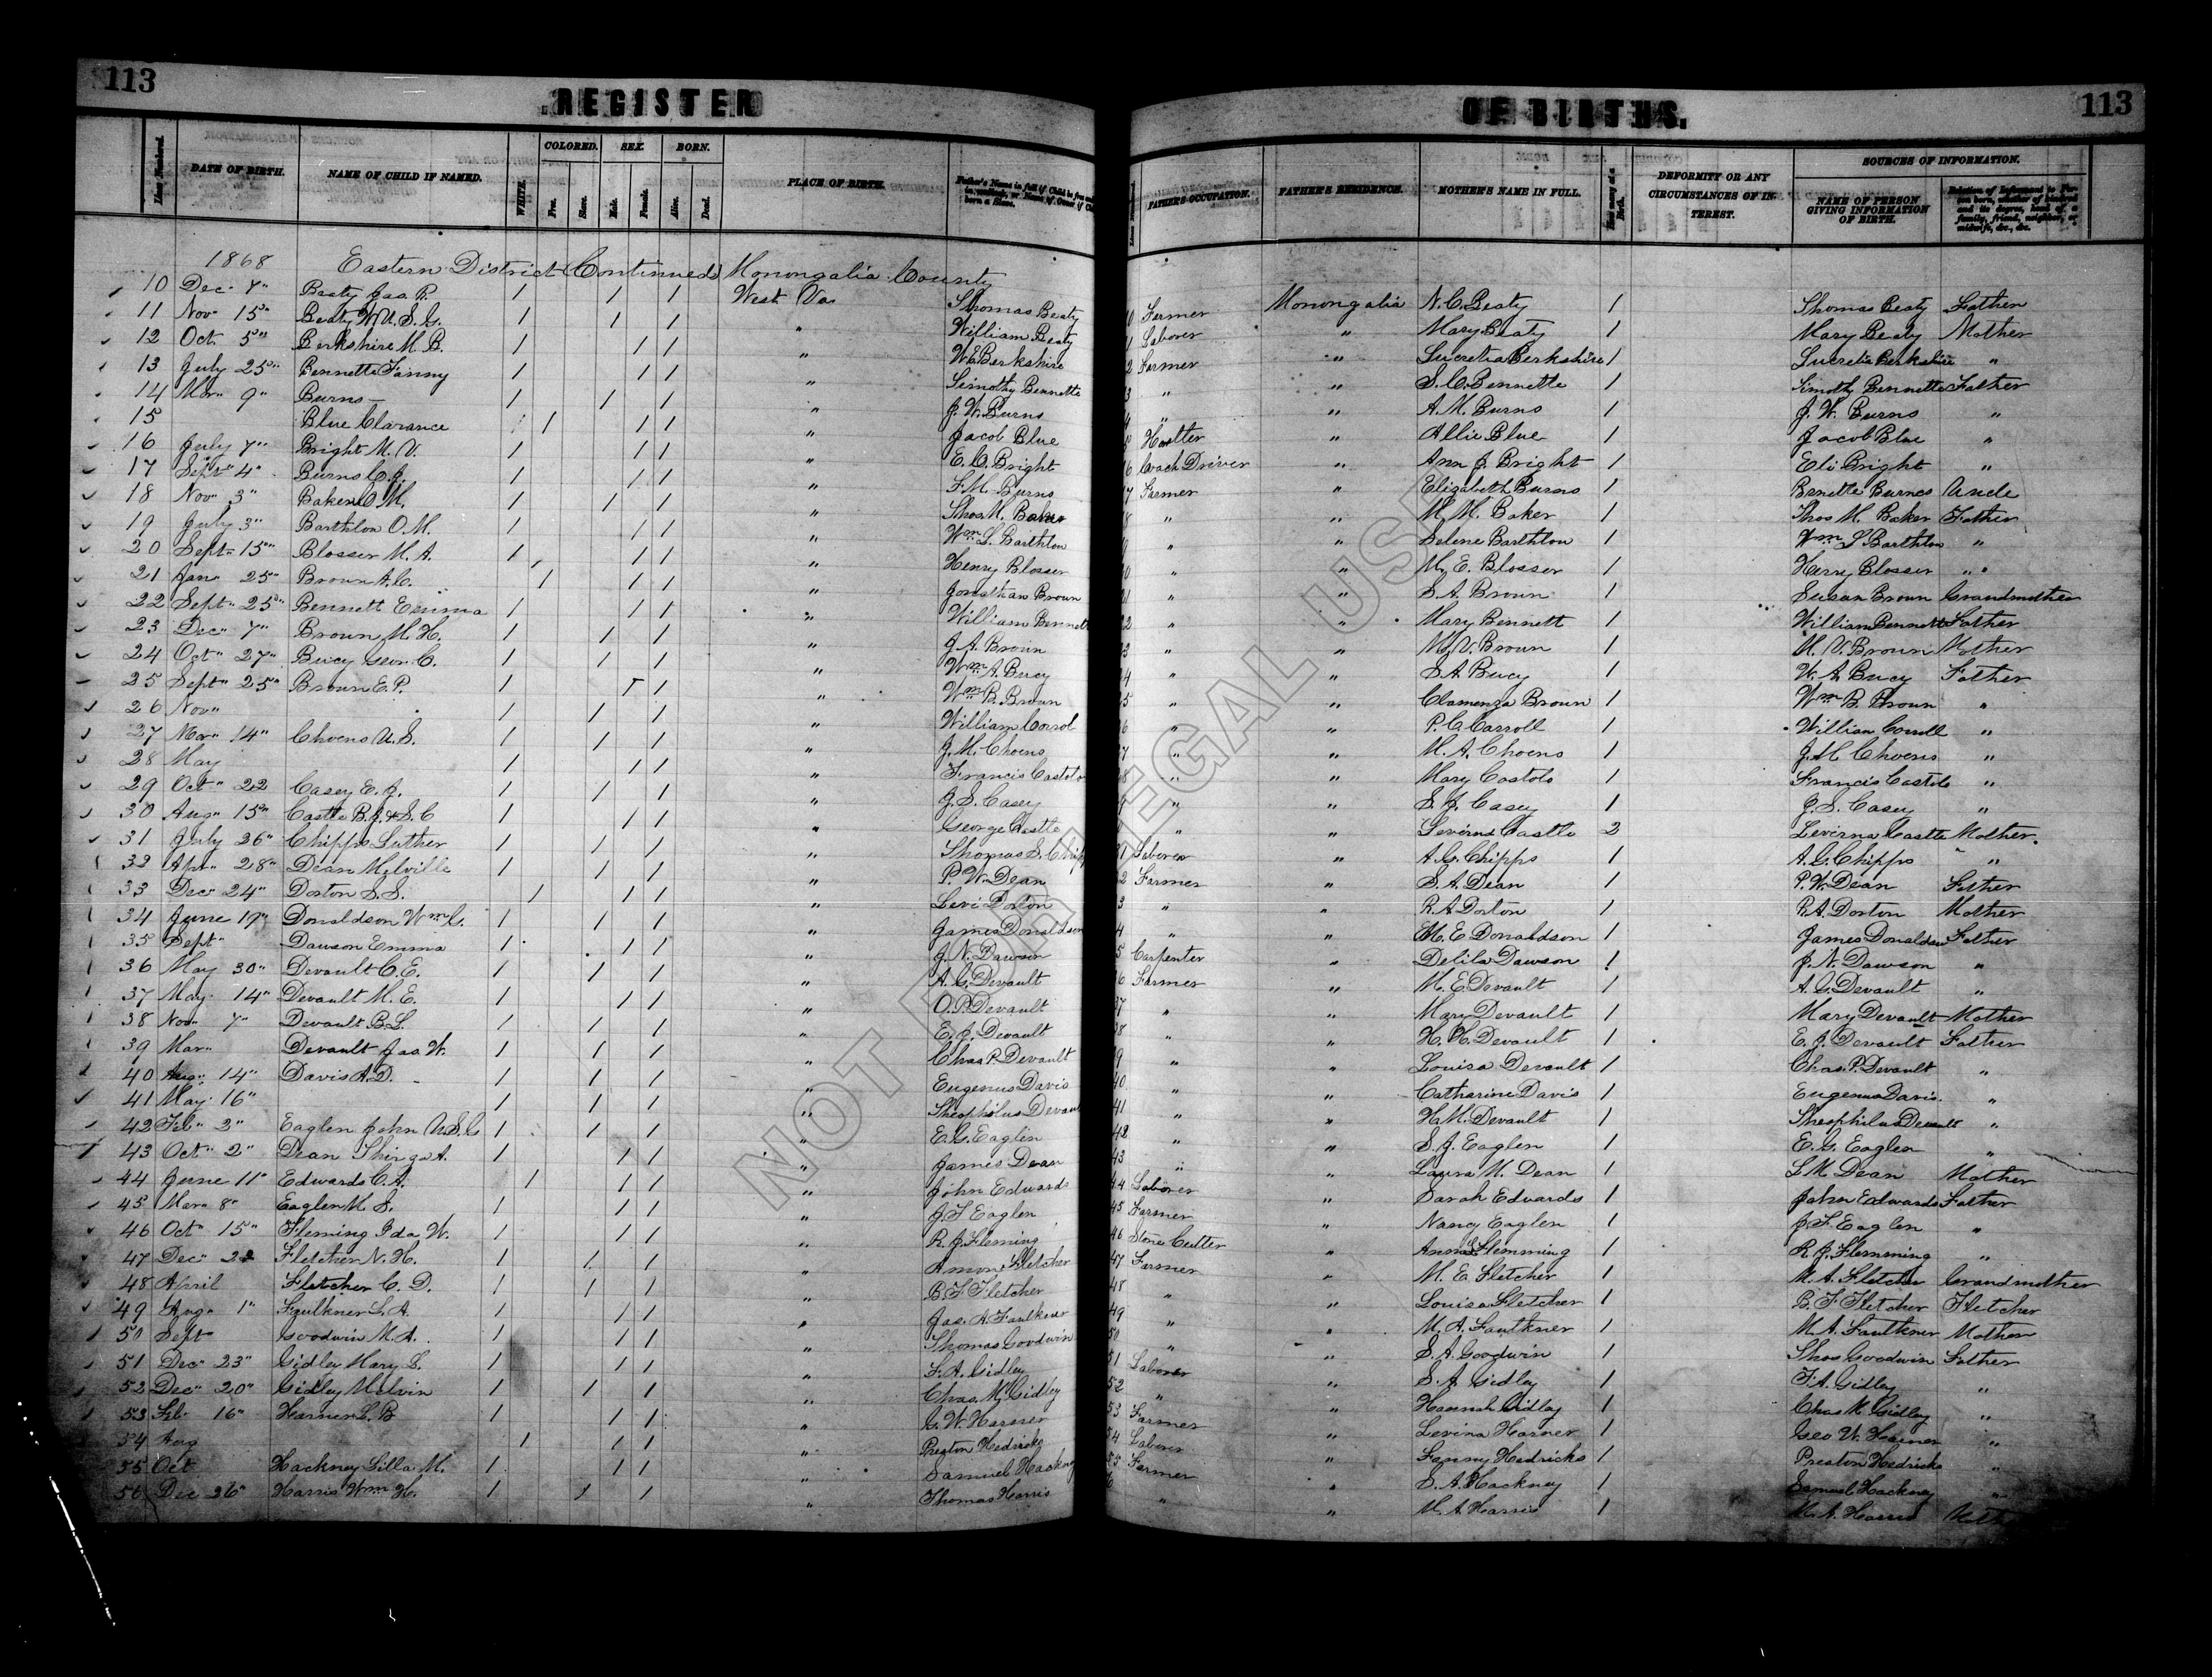 113
REGISTER
OF BIRTHS.
113
Lines Numbered. DATE OF BIRTH. NAME OF CHILD IF NAMED. WHITE. COLORED. Free. Slave. SEX. Male. Female. BORN. Alive. Dead. PLACE OF BIRTH. Father's Name in full if Child is free
FATHER'S OCCUPATION. FATHER'S RESIDENCE. MOTHER'S NAME IN FULL. How many at a Birth. DEFORMITY OR ANY CIRCUMSTANCES OF INTEREST. SOURCES OF INFORMATION. NAME OF PERSON GIVING INFORMATION OF BIRTH. Relation of Informant to Person born, whether of kindred and its degree, head of a family, friend, neighbor, or midwife, &c., &c.
1868 Eastern District Continued Monongalia County
10 Dec " 7" Beaty Jas. P. / / / West Va Thomas Beaty Farmer Monongalia N. C. Beaty 1 Thomas Beaty Father
11 Nov " 15" Beaty W. U. S. G. / / / " William Beaty Laborer " Mary Beaty 1 Mary Beaty Mother
12 Oct 5" Berkshire M. B. / / / " W E Berkshire Farmer " Lucretia Berkshire 1 Lucretia Berkshire "
13 July 25" Bennette Fanny / / / " Timothy Bennette " " S. C. Bennette 1 Timothy Bennette Father
14 Mar " 9" Burns — / / / " J. W. Burns " " A. M. Burns 1 J. W. Burns "
15 Blue Clarance / / / " Jacob Blue " Allie Blue 1 Jacob Blue "
16 July 7" Bright M. V. / / / " E. C. Bright Coach Driver " Ann J. Bright 1 Eli Bright "
17 Sept " 4" Burns C. J. / / / " F. M. Burns Farmer " Elizabeth Burns 1 Burnes Uncle
18 Nov " 3" Baker O. M. / / / " Thos. M. Baker " " M. M. Baker 1 Thos M. Baker Father
19 July 3" Barthlow O. M. / / / " Wm L. Barthlow " " Selene Barthlow 1 Wm L Barthlow "
20 Sept " 15" Blosser M. A. / / / " Henry Blosser " " M. E. Blosser 1 Henry Blosser "
21 Jan " 25" Brown A. C. / / / " Jonathan Brown " " S. A. Brown 1 Susan Brown Grandmother
22 Sept " 25" Bennett Emma / / / " William Bennett " " Mary Bennett 1 William Bennett Father
23 Dec " 7" Brown M. H. / / / " J. A. Brown " " M. V. Brown 1 M. V. Brown Mother
24 Oct " 27" Bucy Geor. C. / / / " Wm A. Bucy " " S. A. Bucy 1 W. A. Bucy Father
25 Sept " 25" Brown E. P. / / / " Wm B. Brown " " Clamenza Brown 1 Wm B. Brown "
26 Nov " / / / " William Corrol " " P. C. Carroll 1 William "
27 Mar " 14" Choens U. S. / / / " J. M. Choens " " M. A. Choens 1 J. M Choens "
28 May / / / " Francis Castolo " " Mary Castolo 1 Francis Castolo "
29 Oct " 22 Casey E. J. / / / " J. S. Casey " " S. J. Casey 1 J. S. Casey "
30 Aug " 15" Castle B. J. & S. C / / / " George Castle " " Castle 2 Castle Mother
31 July 26" Chipps Luther / / / " Thomas S. Chipps Laborer " A. G. Chipps 1 A. G. Chipps "
32 Apr " 28" Dean Melville / / / " P. W. Dean Farmer " S. A. Dean 1 P. W. Dean Father
33 Dec " 24" Dorton S. S. / / / " Levi Dorton " " R. A Dorton 1 R. A. Dorton Mother
34 June 19" Donaldson Wm G. / / / " James Donaldson " " M. E Donaldson 1 James Donaldson Father
35 Sept " Dawson Emma / / / " J. N. Dawson Carpenter " Delila Dawson 1 J. N. Dawson "
36 May 30" Devault C. E. / / / " A. G. Devault Farmer " M. E. Devault 1 A. G. Devault "
37 May 14" Devault M. E. / / / " O. P. Devault " " Mary Devault 1 Mary Devault Mother
38 Nov " 7" Devault B. L. / / / " E. J. Devault " " H. H. Devault 1 E. J. Devault Father
39 Mar " Devault Jas. W. / / / " Chas P. Devault " " Louisa Devault 1 Chas. P. Devault "
40 Aug " 14" Davis A. D. / / / " Eugenus Davis " " Catharine Davis 1 Eugenus Davis "
41 May 16" / / / " Theophilus Devault " " H. M. Devault 1 Theophilus Devault "
42 Feb " 2" Eaglen John U. S. G / / / " E. G. Eaglen " " S. J. Eaglen 1 E. G. Eaglen "
43 Oct " 2" Dean A. / / / " James Dean " " Laura M. Dean 1 L M. Dean Mother
44 June 11" Edwards C. A. / / / " John Edwards Laborer " Sarah Edwards 1 John Edwards Father
45 Mar " 8" Eaglen M. S. / / / " J. F Eaglen Farmer " Nancy Eaglen 1 J. F. Eaglen "
46 Oct " 15" Fleming Ida W. / / / " R. J. Fleming Stone Cutter " Flemming 1 R. J. Flemming "
47 Dec " 22 Fletcher N. H. / / / " Amon Fletcher Farmer " M. E. Fletcher 1 M. A. Fletcher Grandmother
48 April Fletcher C. D. / / / " B. F Fletcher " " Louisa Fletcher 1 B. F Fletcher Fletcher
49 Aug " 1" Faulkner L. A. / / / " Jas. A. Faulkner " " M. A. Faulkner 1 M. A. Faulkner Mother
50 Sept Goodwin M. A. / / / " Thomas Goodwin " " S. A. Goodwin 1 Thos Goodwin Father
51 Dec " 23" Gidley Mary L. / / / " F. A. Gidley Laborer " S. J. Gidley 1 F. A. Gidley "
52 Dec " 20" Gidley Melvin / / / " Chas. M. Gidley " " Hannah Gidley 1 Chas M. Gidley "
53 Feb 16" Harner L. B / / / " G. W. Harner Farmer " Levina Harner 1 Geo W. Harner "
54 Aug / / / " Preston Hedricks Laborer " Fanny Hedricks 1 Preston Hedricks "
55 Oct Hackney Lilla M. / / / " Samuel Hackney Farmer " S. A. Hackney 1 Samuel Hackney "
56 Dec 26" Harris Wm H. / / / " Thomas Harris " " M. A Harris 1 M. A. Harris
NOT FOR LEGAL USE